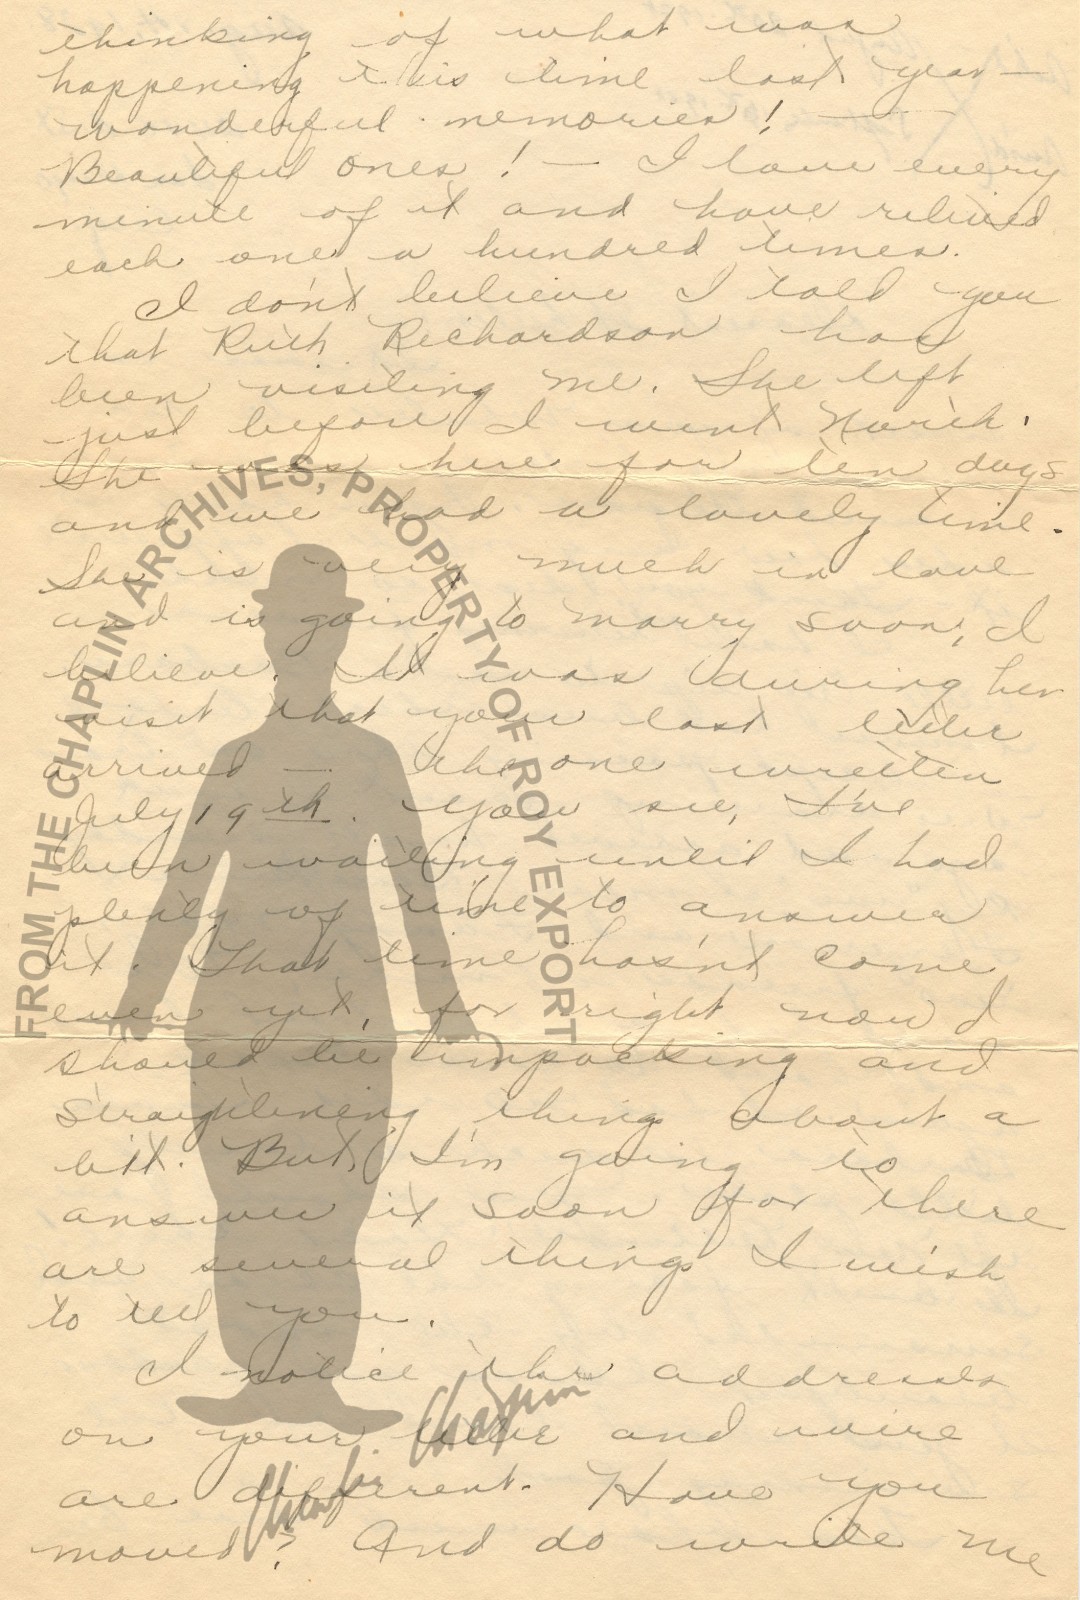 thinking of what was
happening this time last year —
wonderful memories! —
Beautiful ones! — I love every
minute of it and have relived
each one a hundred times.
I don't believe I told you
that Ruth Richardson has
been visiting me. She left
just before I went North.
She was here for ten days
and we had a lovely time.
She is very much in love
and is going to marry soon, I
believe. It was during her
visit that your last letter
arrived — the one written
July 19th. You see, I've
been waiting until I had
plenty of time to answer
it. That time hasn't come
even yet, for right now I
should be unpacking and
straightening things about a
bit. But I'm going to
answer it soon for there
are several things I wish
to tell you.
I notice the addresses
on your letter and wire
are different. Have you
moved? And do write me
FROM THE CHAPLIN ARCHIVES, PROPERTY OF ROY EXPORT
Charlie Chaplin